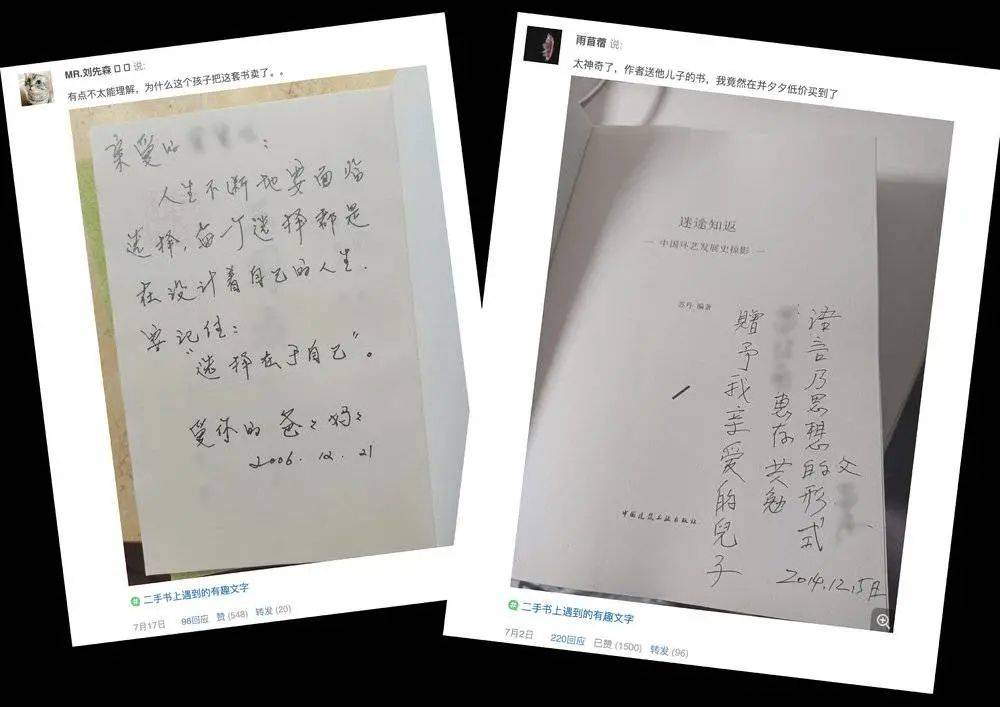 MR.刘先森 说:
有点不太能理解，为什么这个孩子把这套书卖了。。
亲爱的 ：
人生不断地要面临
选择，每个选择都是
在设计着自己的人生.
要记住：
“选择在于自己”。
爱你的爸々妈々
2006.12.21
二手书上遇到的有趣文字
7月17日 98回应 赞 (548) 转发 (20)
雨苜蓿 说:
太神奇了，作者送他儿子的书，我竟然在并夕夕低价买到了
迷途知返
— 中国环艺发展史掠影 —
苏丹 编著
赠予我亲爱的兒子
惠存共勉
语言乃思想的形式
文
2014.12.15日
中国建筑工业出版社
二手书上遇到的有趣文字
7月2日 220回应 已赞 (1500) 转发 (96)